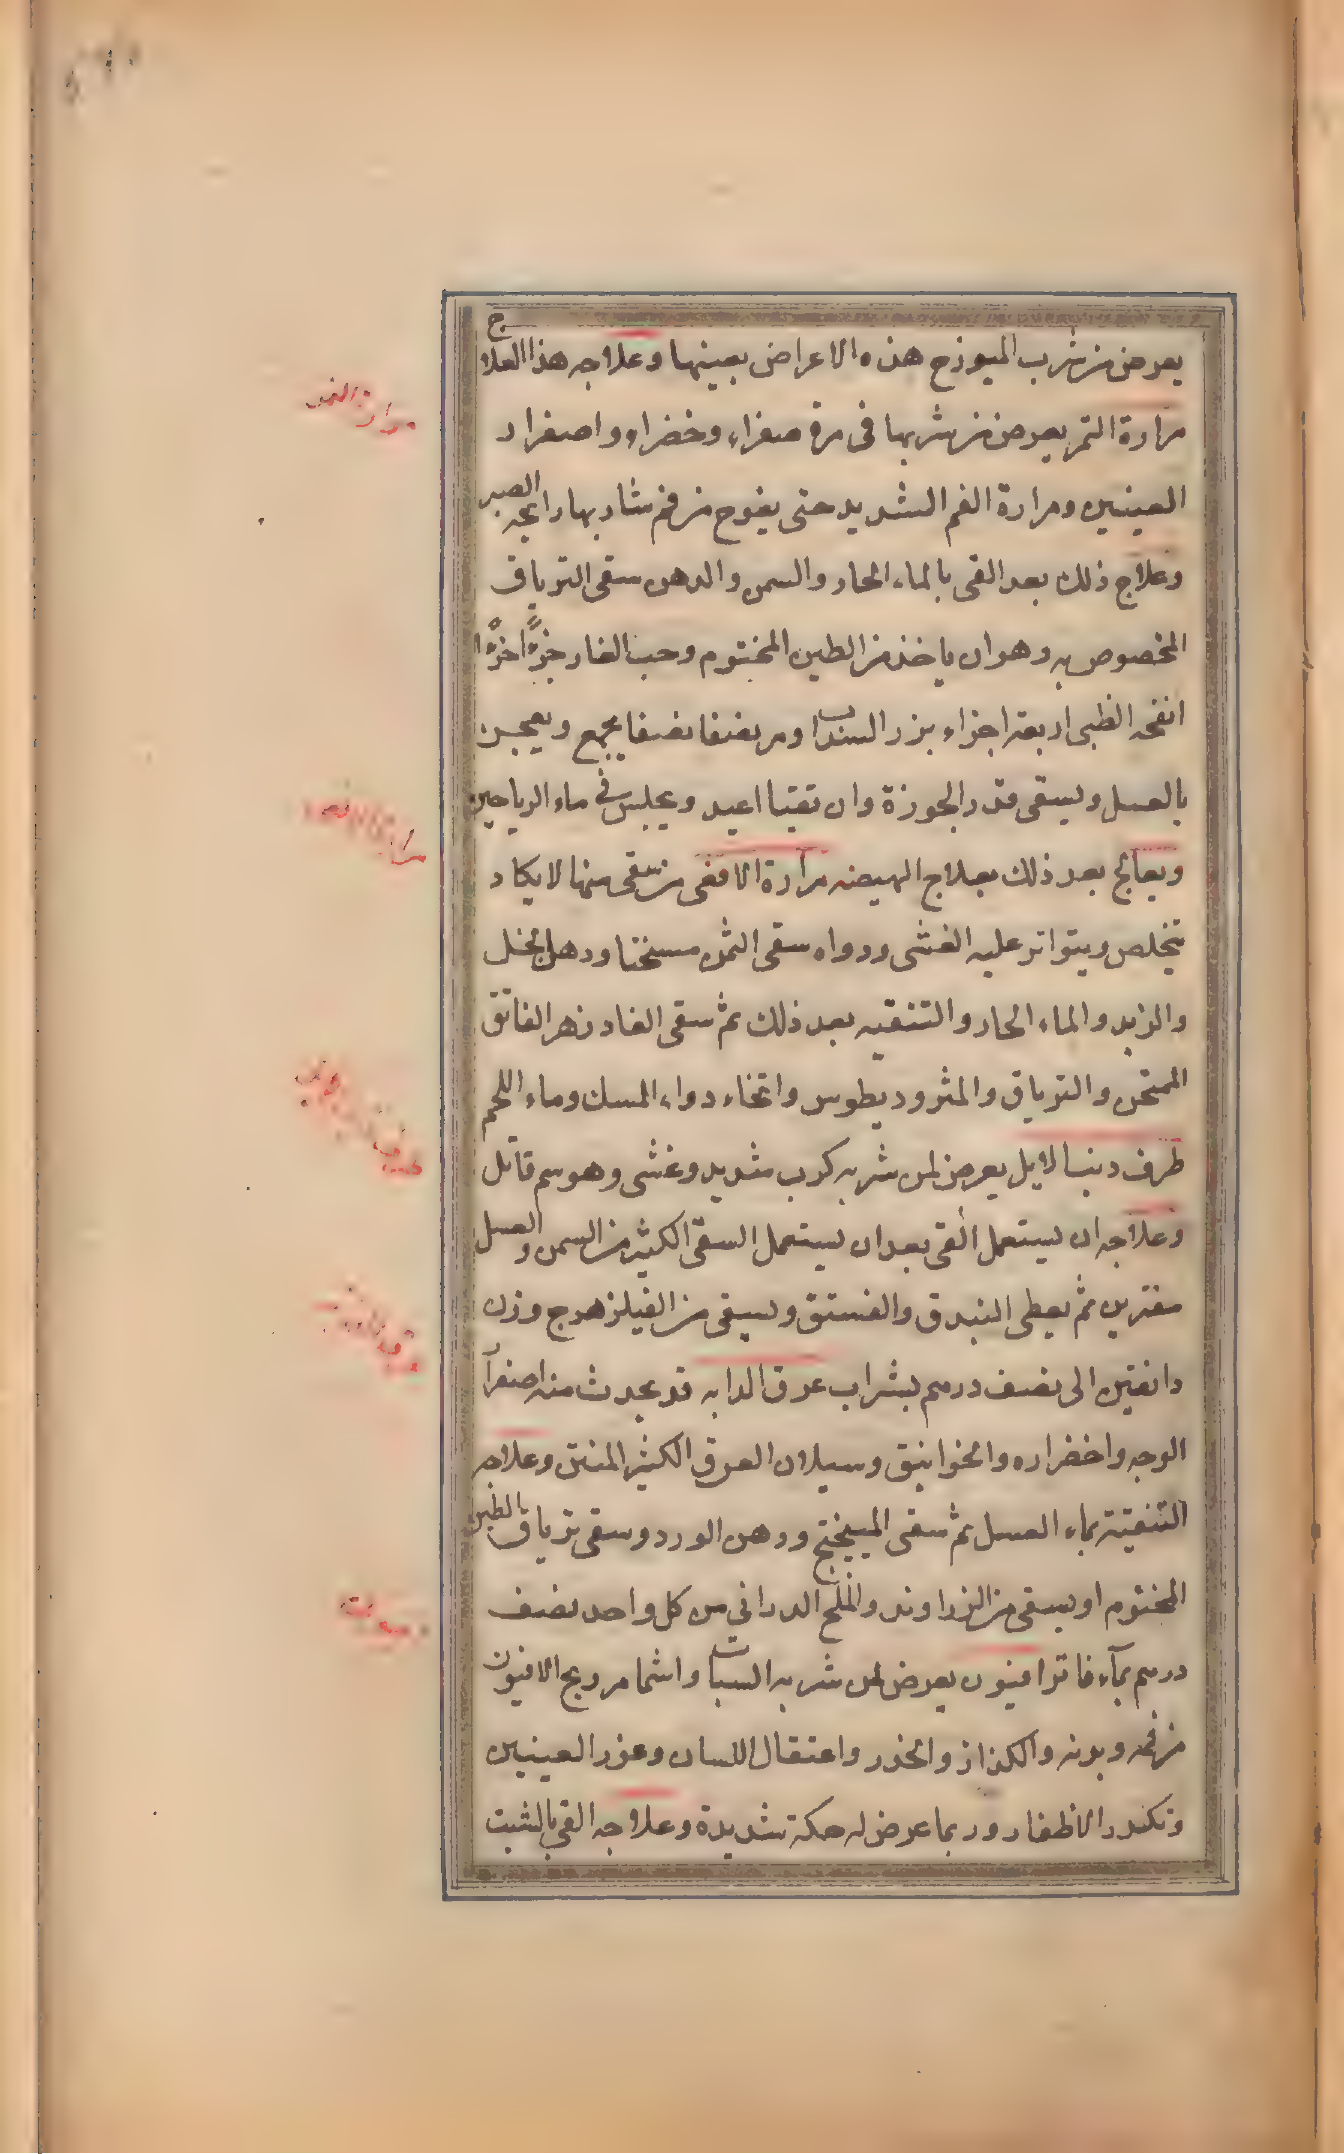 يعرض من شرب الميوزج هذه الاعراض بعينها وعلاجه هذا العلاج
مرارة النمر يعرض من شربها قى مرة صفراء وخضراء واصفرار
العينين ومرارة الفم الشديد حتى يفوح من فم شاربها رايحة الصبر
وعلاج ذلك بعد القى بالماء الحار والسمن والدهن سقى الترياق
المخصوص به وهو ان ياخذ من الطين المختوم وحب الغار جزءًا جزءًا
انفحة الظبى اربعة اجزاء بزر السنداب ومر نصفا نصفا يجمع ويعجن
بالعسل ويسقى قدر الجوزة وان تقيا اعيد ويجلس فى ماء الرياحين
ويعالج بعد ذلك بعلاج الهيضه مرارة الافعى من سقى منها لا يكاد
يتخلص ويتواتر عليه الغشى ودواه سقى الثمن مسخنا ودهن الخل
والزبد والماء الحار والتنقيه بعد ذلك ثم سقى الفادزهر الفائق
الممتحن والترياق والمثروديطوس واتخاء دواء المسك وماء اللحم
طرف دنب الايل يعرض لمن شربه كرب شديد وغشى وهو سم قاتل
وعلاجه ان يستعمل القى بعد ان يستعمل السقى الكثير من السمن والعسل
مفترين ثم يعطى البندق والفستق ويسقى من الفيلزهرج وزن
دانقين الى نصف درهم بشراب عرق الدابه قد يحدث منه اصفرار
الوجه واخضراره والخوانيق وسيلان العرق الكثير المنتن وعلاجه
التنقية بماء العسل ثم سقى الميبختج ودهن الورد وسقى ترياق الطين
المختوم او يسقى من الزراوند والملح الدرانى من كل واحد نصف
درهم بماء فاتر افيون يعرض لمن شربه السبات واشمام ريح الافيون
من فمه وبدنه والكزاز والخدر واعتقال اللسان وغور العينين
وتكدر الاظفار وربما عرض له حكة شديدة وعلاجه القى بالشبت
مرارة النمر
مرارة الافعى